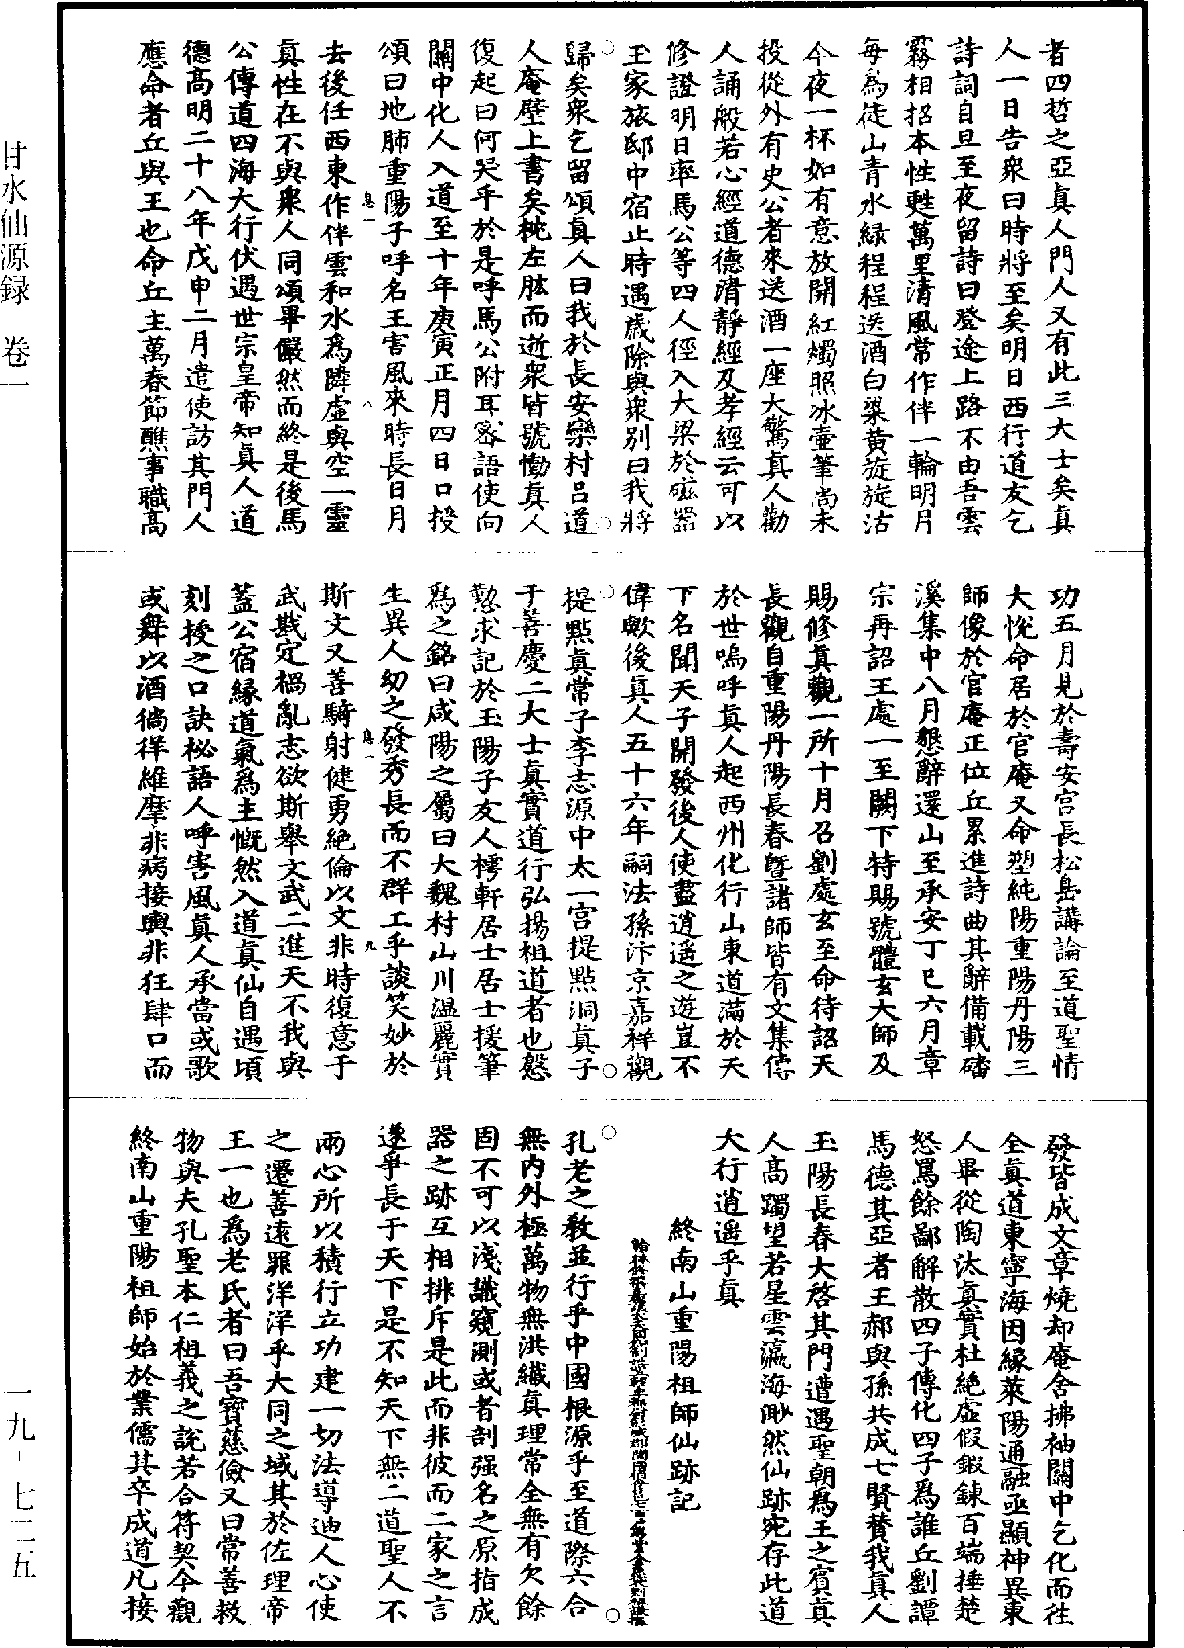 者四哲之亞真人門人又有此三大士矣真
人一日告衆曰時將至矣明日西行道友乞
詩詞自旦至夜留詩曰登途上路不由吾雲
霧相招本性甦萬里清風常作伴一輪明月
每為徒山青水緑程程送酒白粱黃旋旋沽
今夜一杯如有意放開紅燭照冰壺筆尚未
投從外有史公者來送酒一座大驚真人勸
人誦般若心經道德清靜經及孝經云可以
修證明日率馬公等四人徑入大梁於磁器
王家旅邸中宿止時遇歲除與衆別曰我將
歸矣衆乞留頌真人曰我於長安欒村呂道
人庵壁上書矣枕左肱而逝衆皆號慟真人
復起曰何哭乎於是呼馬公附耳密語使向
關中化人入道至十年庚寅正月四日口授
頌曰地肺重陽子呼名王害風來時長日月
去後任西東作伴雲和水為隣虛與空一靈
真性在不與衆人同頌畢儼然而終是後馬
公傳道四海大行伏遇世宗皇帝知真人道
德高明二十八年戊申二月遣使訪其門人
應命者丘與王也命丘主萬春節醮事職高
功五月見於壽安宮長松島講論至道聖情
大悅命居於官庵又命塑純陽重陽丹陽三
師像於官庵正位丘累進詩曲其辭備載磻
溪集中八月懇辭還山至承安丁巳六月章
宗再詔王處一至闕下特賜號體玄大師及
賜修真觀一所十月召劉處玄至命待詔天
長觀自重陽丹陽長春暨諸師皆有文集傳
於世嗚呼真人起西州化行山東道滿於天
下名聞天子開發後人使盡逍遥之遊豈不
偉歟後真人五十六年嗣法孫汴京嘉祥觀
提點真常子李志源中太一宮提點洞真子
于善慶二大士真實道行弘揚祖道者也慇
懃求記於玉陽子友人樗軒居士居士援筆
為之銘曰咸陽之屬曰大魏村山川溫麗實
生異人幼之發秀長而不群工乎談笑妙於
斯文又善騎射健勇絶倫以文非時復意于
武戡定禍亂志欲斯舉文武二進天不我與
蓋公宿緣道氣為主慨然入道真仙自遇頃
刻授之口訣秘語人呼害風真人承當或歌
或舞以酒徜徉維摩非病接輿非狂肆口而
發皆成文章燒却庵舍拂袖關中乞化而往
全真道東寧海因緣萊陽通融亟顯神異東
人畢從陶汰真實杜絶虛假鍜鍊百端捶楚
怒罵餘鄙解散四子傳化四子為誰丘劉譚
馬德其亞者王郝與孫共成七賢贊我真人
玉陽長春大啓其門遭遇聖朝為王之賓真
人高躅望若星雲瀛海眇然仙跡宛存此道
大行逍遥乎真
終南山重陽祖師仙跡記
孔老之教並行乎中國根源乎至道際六合
無內外極萬物無洪纖真理常全無有欠餘
固不可以淺識窺測或者剖强名之原指成
器之跡互相排斥是此而非彼而二家之言
遂爭長于天下是不知天下無二道聖人不
兩心所以積行立功建一切法導迪人心使
之遷善遠罪洋洋乎大同之域其於佐理帝
王一也為老氏者曰吾寶慈儉又曰常善救
物與夫孔聖本仁祖義之說若合符契今觀
終南山重陽祖師始於業儒其卒成道凡接
甘水仙源録　卷一
一九‐七二五